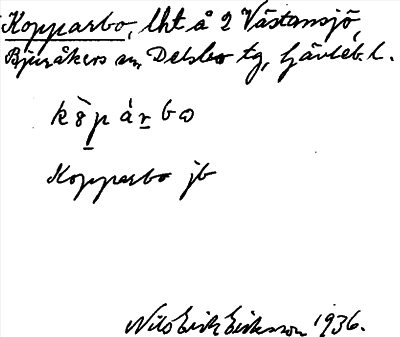 Kopparbo, lht å 2 Västansjö,
Bjuråkers sn, Delsbo tg, Gävleb. l.
kö̀párbω
Kopparbo jb
Nils Erik Eriksson 1936.